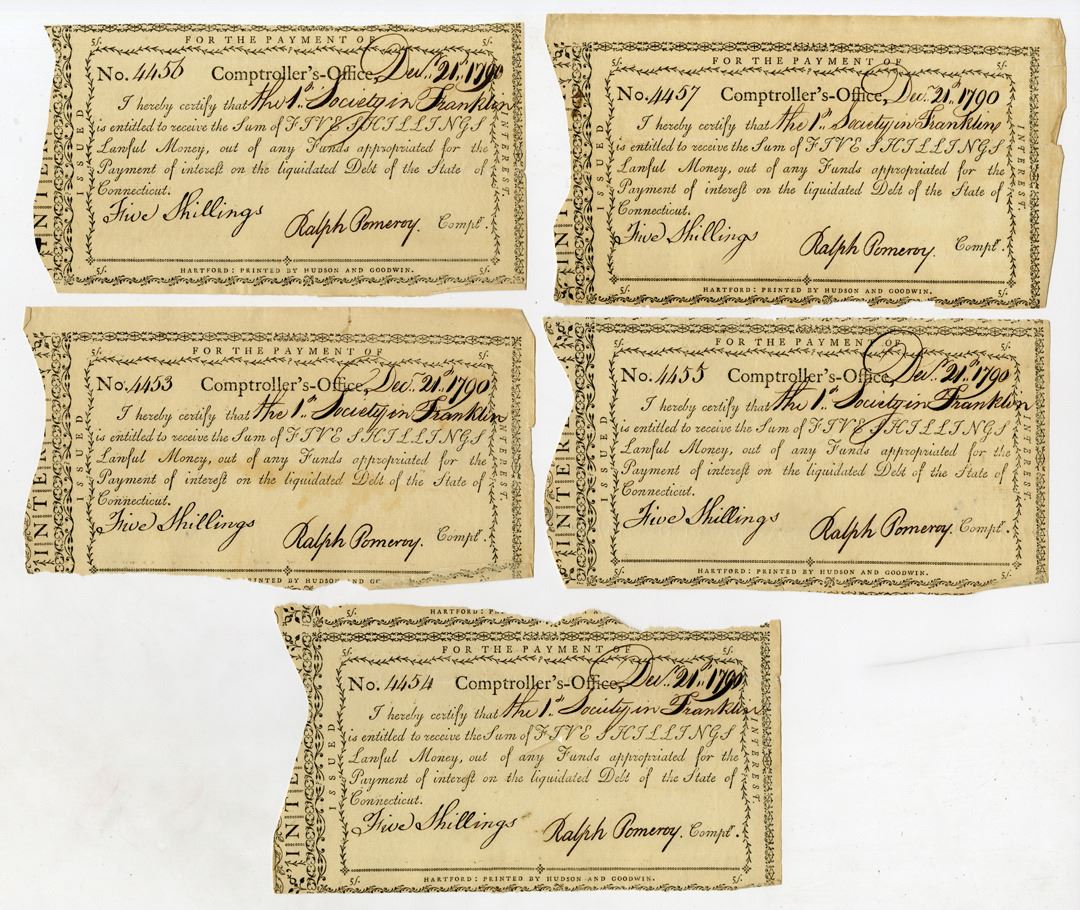 5/. 5/.
FOR THE PAYMENT OF
No. 4456 Comptroller's-Office, Decr. 21st. 1790
I hereby certify that the 1st. Society in Franklin
is entitled to receive the Sum of FIVE SHILLINGS
Lawful Money, out of any Funds appropriated for the
Payment of interest on the liquidated Debt of the State of
Connecticut.
Five Shillings
Ralph Pomeroy. Compt.
5/. HARTFORD: PRINTED BY HUDSON AND GOODWIN. 5/.
ISSUED
INTEREST.
INTE
5/. 5/.
FOR THE PAYMENT OF
No. 4457 Comptroller's-Office, Decr. 21st. 1790
I hereby certify that the 1st. Society in Franklin
is entitled to receive the Sum of FIVE SHILLINGS
Lawful Money, out of any Funds appropriated for the
Payment of interest on the liquidated Debt of the State of
Connecticut.
Five Shillings
Ralph Pomeroy. Compt.
5/. HARTFORD: PRINTED BY HUDSON AND GOODWIN. 5/.
ISSUED
INTEREST.
INT
5/. 5/.
FOR THE PAYMENT OF
No. 4453 Comptroller's-Office, Decr. 21st. 1790
I hereby certify that the 1st. Society in Franklin
is entitled to receive the Sum of FIVE SHILLINGS
Lawful Money, out of any Funds appropriated for the
Payment of interest on the liquidated Debt of the State of
Connecticut.
Five Shillings
Ralph Pomeroy. Compt.
PRINTED BY HUDSON AND GO
ISSUED
INTEREST.
INTER
5/. 5/.
FOR THE PAYMENT OF
No. 4455 Comptroller's-Office, Decr. 21st. 1790
I hereby certify that the 1st. Society in Franklin
is entitled to receive the Sum of FIVE SHILLINGS
Lawful Money, out of any Funds appropriated for the
Payment of interest on the liquidated Debt of the State of
Connecticut.
Five Shillings
Ralph Pomeroy. Compt.
5/. HARTFORD: PRINTED BY HUDSON AND GOODWIN. 5/.
ISSUED
INTEREST.
INTERE
5/. HARTFORD: PR 5/.
5/. 5/.
FOR THE PAYMENT OF
No. 4454 Comptroller's-Office, Decr. 21st. 1790
I hereby certify that the 1st. Society in Franklin
is entitled to receive the Sum of FIVE SHILLINGS
Lawful Money, out of any Funds appropriated for the
Payment of interest on the liquidated Debt of the State of
Connecticut.
Five Shillings
Ralph Pomeroy. Compt.
5/. HARTFORD: PRINTED BY HUDSON AND GOODWIN. 5/.
ISSUED
INTEREST.
INTE